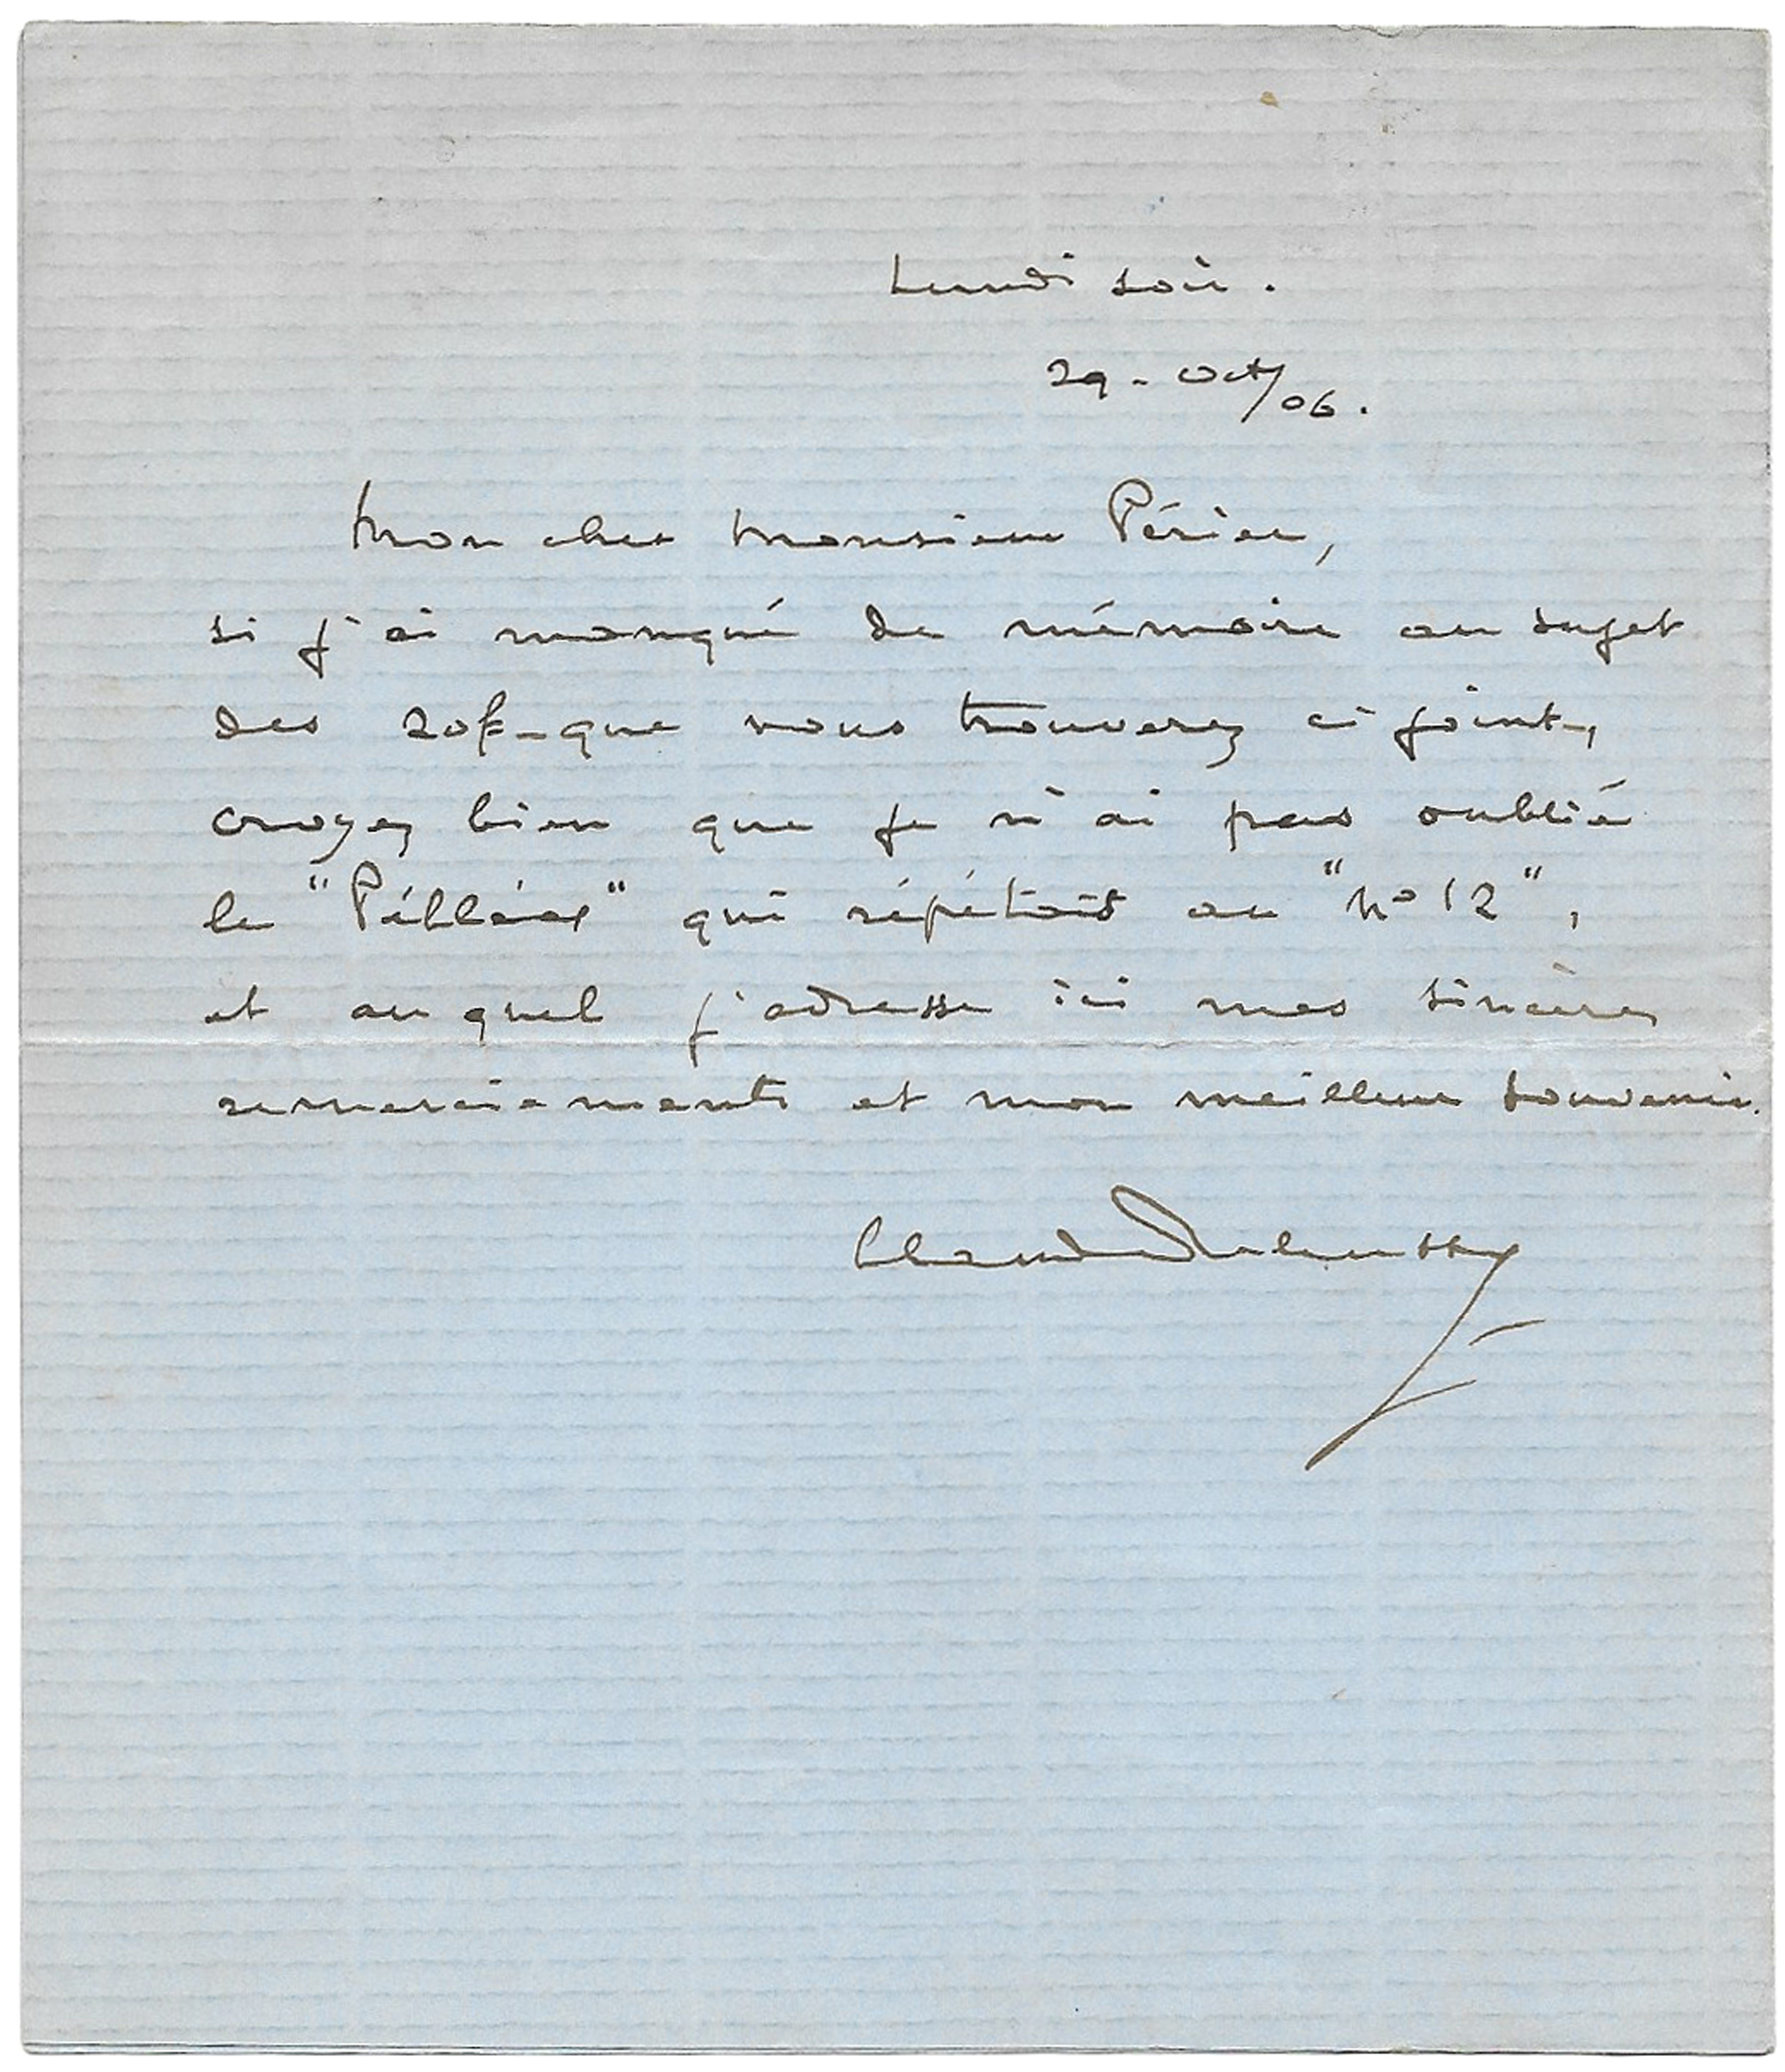 Lundi soir.
29. Oct/06.
Mon cher Monsieur Périer,
si j'ai manqué de mémoire au sujet
des 20f-que vous trouverez ci joint-,
croyez bien que je n'ai pas oublié
le "Pélléas" qui répétait au "No 12",
et auquel j'adresse ici mes sincères
remerciements et mon meilleur souvenir.
Claude Debussy